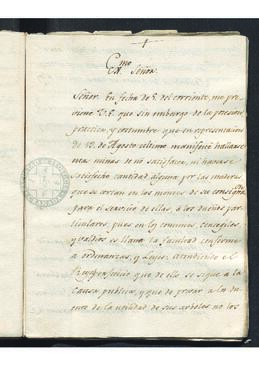 Exmo
Señor.
Señor. En fecha de 8. del corriente, me pre-
viene V.E. que sin embargo de la posesion,
practica, y costumbre que en representacion
de 12. de Agosto ultimo manifesté hallarse
minas de no satisfacer, ni haverse
satisfecho cantidad alguna por las maderas
que se cortan en los montes de su
para el servicio de ellas, á los dueños par-
ticulares, pues en los comunes, concegiles,
y valdios es llana la facultad conforme
á ordenanzas, y Leyes; atendiendo el
perjuicio que de ello se sigue a la
causa publica, y que de privar a los du-
eños de la utilidad de sus arboles no los